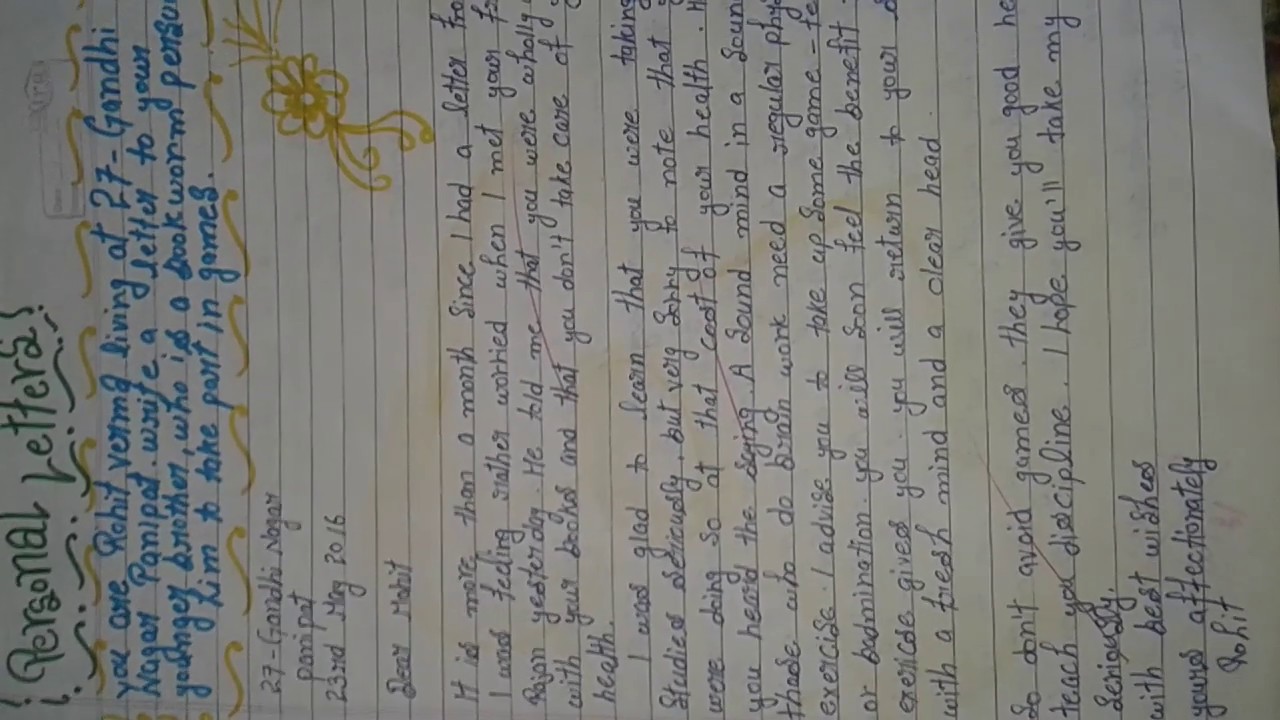 Personal Letters
You are Rohit verma living at 27-Gandhi
Nagar Panipat. write a letter to your
younger brother, who is a bookworm persua
him to take part in games.
27-Gandhi Nagar
panipat
23rd May 2016
Dear Mohit
It is more than a month since I had a letter fro
I was feeling rather worried when I met your
Rajan yesterday. He told me that you were wholly
with your books and that you don't take care of
health.
I was glad to learn that you were taking
studies seriously. but very sorry to note that
were doing so at that cost of your health.
you heard the saying. A Sound mind in a soun
those who do brain work need a regular phy
exercise. I advise you to take up some game - te
or badmination. you will soon feel the benefit
exercise gives you. you will return to your
with a fresh mind and a clear head.
So don't avoid games. they give you good he
teach you discipline. I hope you'll take my
seriously.
with best wishes
yours affectionately
Rohit